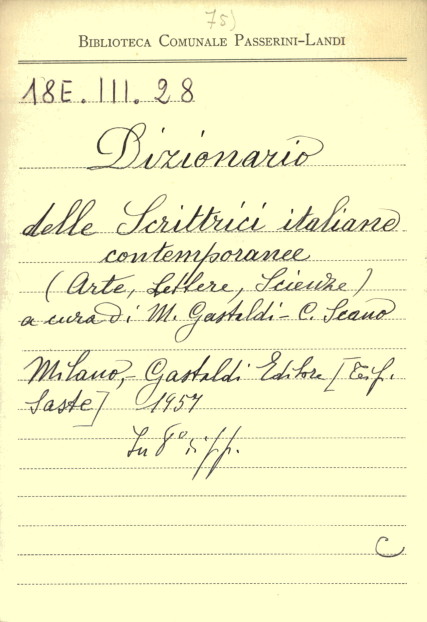 75)
BIBLIOTECA COMUNALE PASSERINI-LANDI
18E. III. 28
Dizionario
delle Scrittrici italiane
contemporanee
(Arte, Lettere, Scienze)
a cura di M. Gastaldi - C. Scano
Milano, - Gastaldi Editore [Tip.
Saste] 1957
In 8° di pp.
C